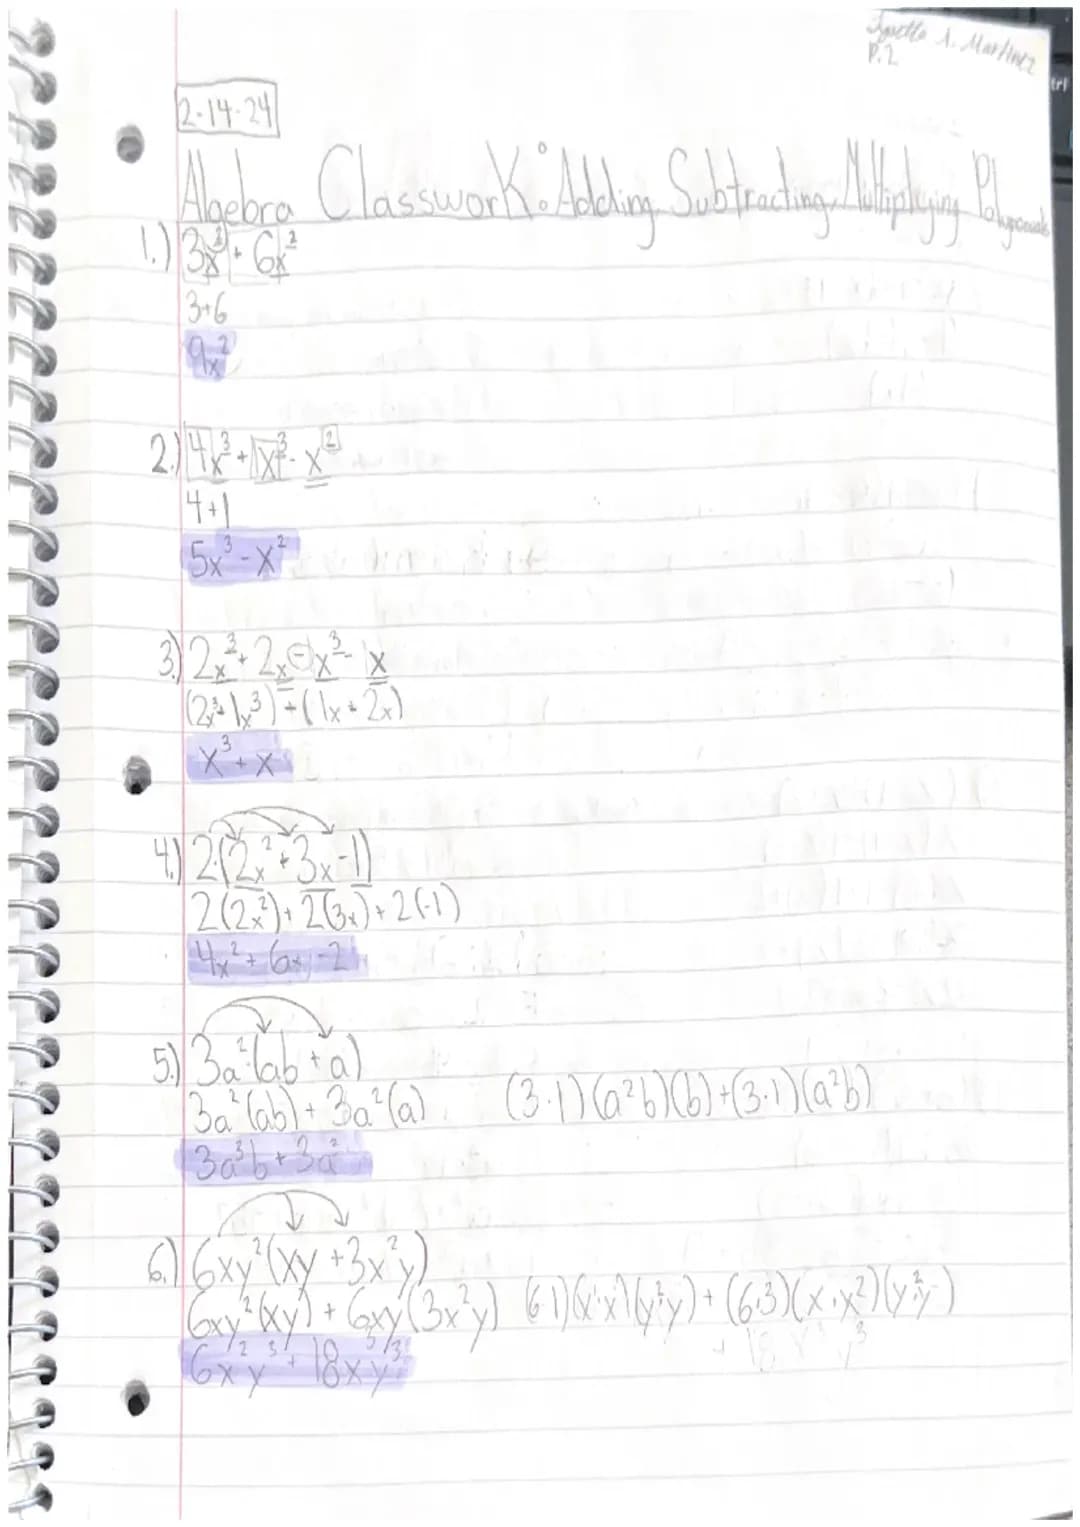 A. Martinez
P.2
2-14-24
Algebra Classwork: Adding, Subtracting, Multiplying Polynomials
1.) 3x² + 6x²
3+6
9x²
2.) 4x³ + 1x³ - x²
4+1
5x³ - x²
3.) 2x³ + 2x - x³ - 1x
(2x³ - 1x³) + (1x + 2x)
x³ + x
4.) 2(2x² + 3x - 1)
2(2x²) + 2(3x) + 2(-1)
4x² + 6x - 2
5.) 3a²(ab + a)
3a²(ab) + 3a²(a) (3·1)(a²b)(b)+(3·1)(a²b)
3a³b + 3a²
6.) 6xy²(xy + 3x²y)
6xy²(xy) + 6xy(3x²y) (6·1)(x·x)(y²·y) + (6·3)(x·x²)(y²·y)
6x²y³ + 18x³y³ + 18 x³ y³